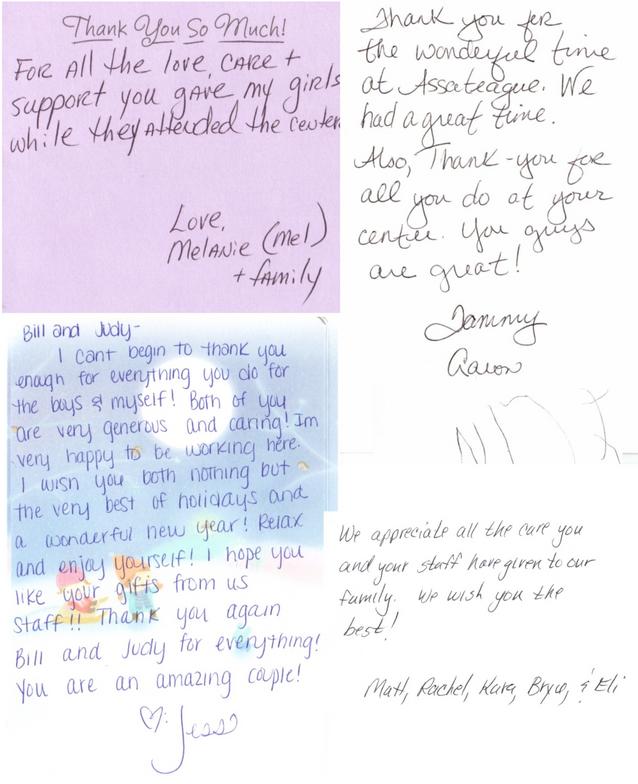 Thank You So Much!
FOR All the love, CARE +
support you gave my girls
while they Attended the center
Love,
Melanie (mel)
+ family
Thank you for
the wonderful time
at Assateague. We
had a great time.
Also, Thank-you for
all you do at your
center. You guys
are great!
Tammy
Aaron
Bill and Judy-
I cant begin to thank you
enough for everything you do for
the boys & myself! Both of you
are very generous and caring! Im
very happy to be working here.
I wish you both nothing but
the very best of holidays and
a wonderful new year! Relax
and enjoy yourself! I hope you
like your gifts from us
Staff!! Thank you again
Bill and Judy for everything!
You are an amazing couple!
♡: Jess
We appreciate all the care you
and your staff have given to our
family. We wish you the
best!
Matt, Rachel, Kara, Bryce, & Eli